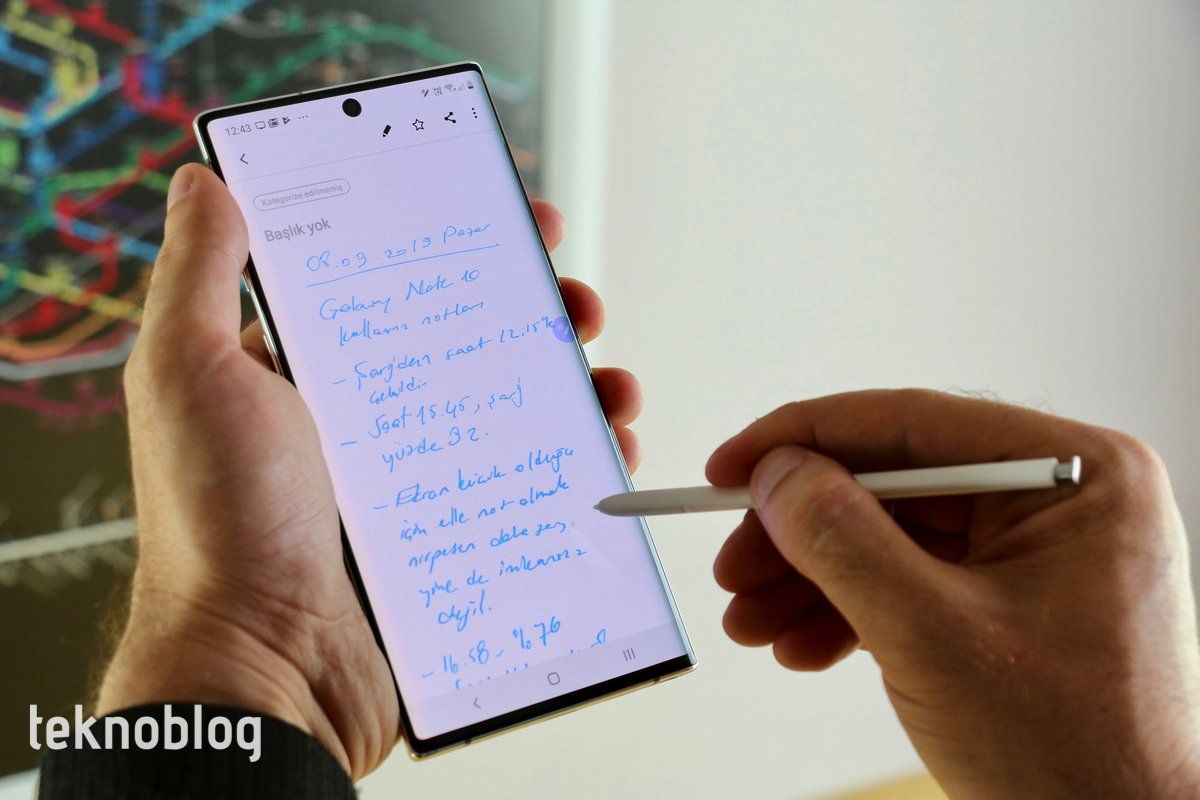 12:43
Kategorize edilmemiş
Başlık yok
08.09.2019 Pazar
Galaxy Note 10
kullanım notları
- Şarj'den saat 12.15'te
çekildi.
- Saat 15.45, şarj
yüzde 92.
- Ekran küçük olduğu
için elle not almak
nispeten daha zor,
yine de imkansız
değil.
- 16.58 - %76
teknoblog